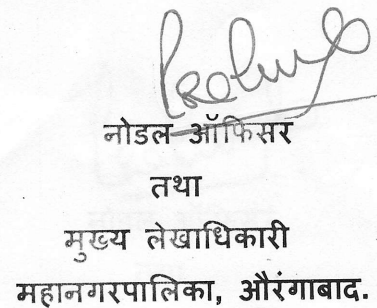 नोडल ऑफिसर
तथा
मुख्य लेखाधिकारी
महानगरपालिका, औरंगाबाद.